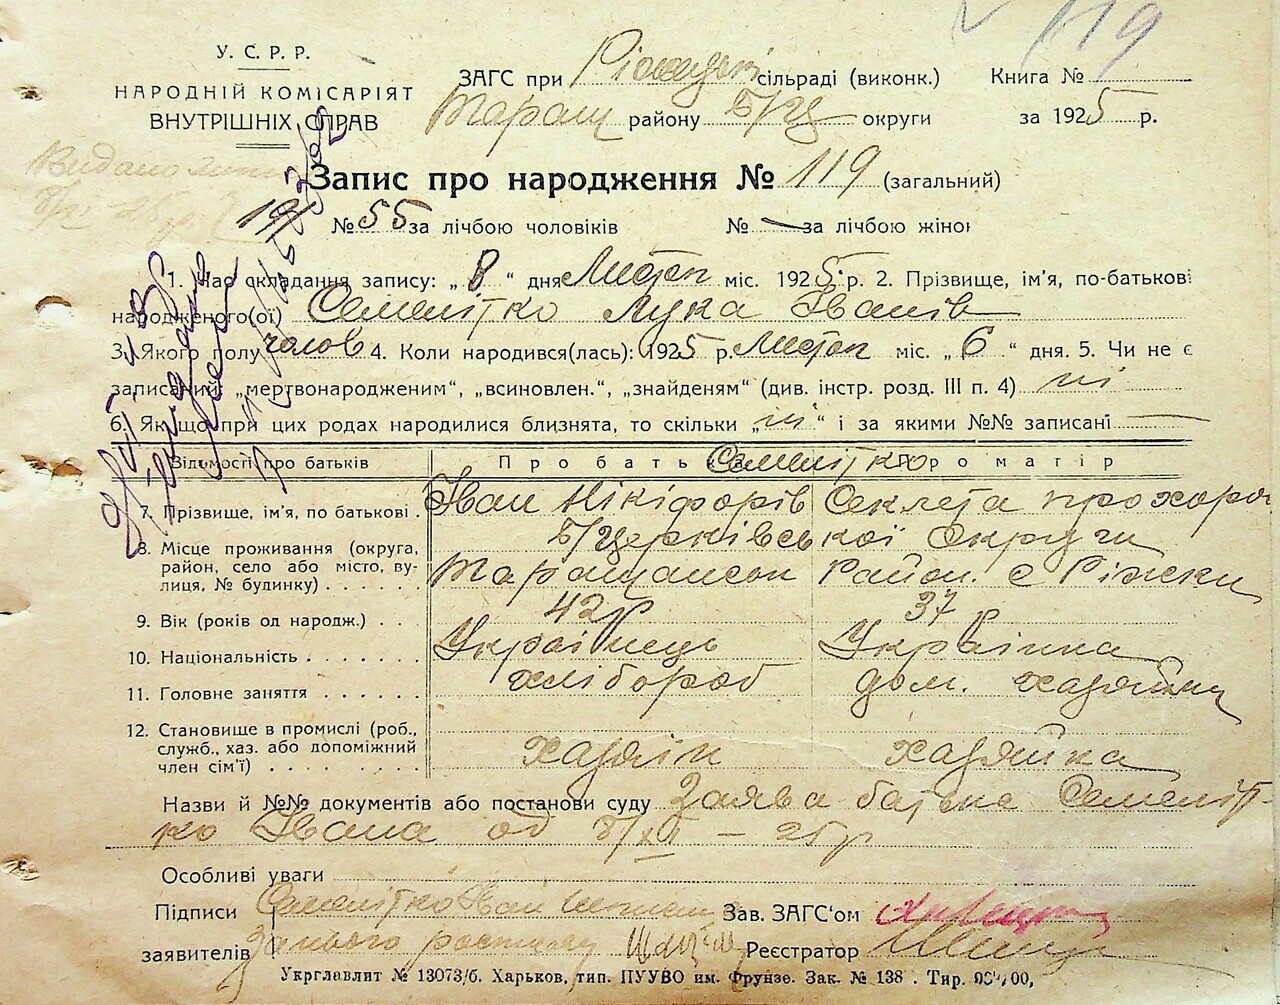 119
У. С. Р. Р.
НАРОДНІЙ КОМІСАРІЯТ
ВНУТРІШНІХ СПРАВ
ЗАГС при сільраді (виконк.)
Таращ району Б/Ц округи
Книга №
за 1925 р.
Запис про народження № 119 (загальний)
№ 55 за лічбою чоловіків № — за лічбою жінок
1. Час складання запису: „ 8 “ дня Листоп міс. 1925 р. 2. Прізвище, ім'я, по-батькові
народженого(ої) Семелітко Лука Іванів
3. Якого полу чолов 4. Коли народився(лась): 1925 р. Листоп міс. „ 6 “ дня. 5. Чи не є
записаний „мертвонародженим“, „всиновлен.“, „знайденям“ (див. інстр. розд. III п. 4) ні
6. Якщо при цих родах народилися близнята, то скільки „ ні “ і за якими №№ записані
Відомості про батьків Про батька Про матір
Семелітко
7. Прізвище, ім'я, по батькові . Іван Нікіфорів Секлета Прохорів
8. Місце проживання (округа,
район, село або місто, ву-
лиця, № будинку)
Б/Церківської Округи
Таращанськ Район. с Ріжки
9. Вік (років од народж.) . . 42 р 37
10. Національність Українець Українка
11. Головне заняття хлібороб дом. хазяйка
12. Становище в промислі (роб.,
служб., хаз. або допоміжний
член сім'ї) хазяін хазяйка
Назви й №№ документів або постанови суду Заява батька Семеліт-
ко Івана од 8/XI – 25 р
Особливі уваги
Підписи Семелітко Іван Зав. ЗАГС'ом
заявителів За нього Реєстратор
Укрглавлит № 13073/б. Харьков, тип. ПУУВО им. Фрунзе. Зак. № 138. Тир.